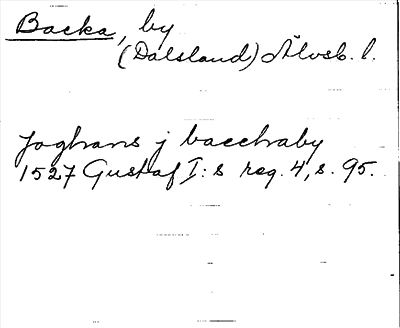 Backa, by
(Dalsland) Älvsb. l.
Joghans j bacchaby
1527 Gustaf I:s reg. 4, s. 95.